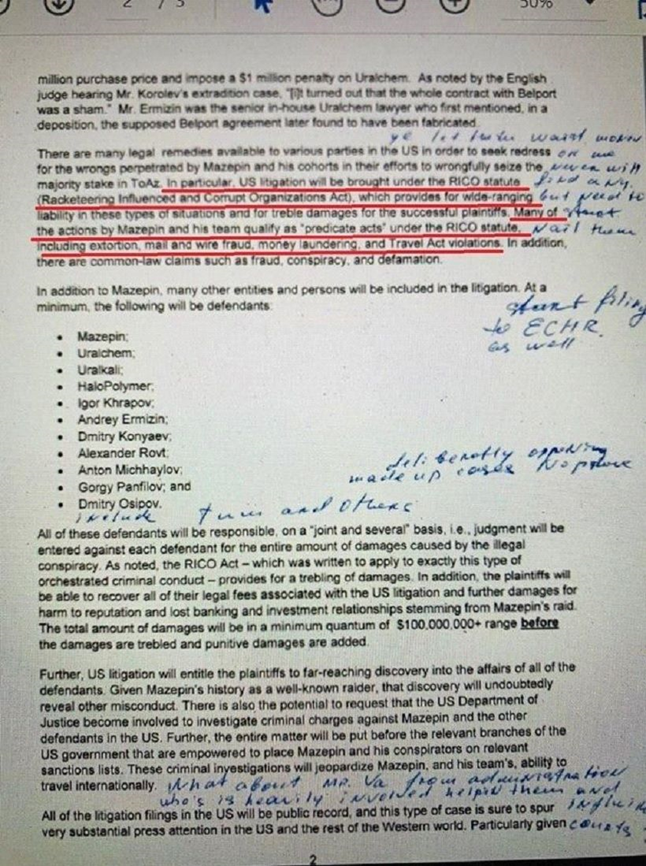 2 / 3
50%
million purchase price and impose a $1 million penalty on Uralchem. As noted by the English
judge hearing Mr. Korolev's extradition case, "[i]t turned out that the whole contract with Belport
was a sham." Mr. Ermizin was the senior in-house Uralchem lawyer who first mentioned, in a
deposition, the supposed Belport agreement later found to have been fabricated.
want money
There are many legal remedies available to various parties in the US in order to seek redress on me
for the wrongs perpetrated by Mazepin and his cohorts in their efforts to wrongfully seize the never will
majority stake in ToAz. In particular, US litigation will be brought under the RICO statute find any,
(Racketeering Influenced and Corrupt Organizations Act), which provides for wide-ranging but need to
liability in these types of situations and for treble damages for the successful plaintiffs. Many of
the actions by Mazepin and his team qualify as "predicate acts" under the RICO statute, Nail them
including extortion, mail and wire fraud, money laundering, and Travel Act violations. In addition,
there are common-law claims such as fraud, conspiracy, and defamation.
In addition to Mazepin, many other entities and persons will be included in the litigation. At a
minimum, the following will be defendants:
start filing
to ECHR.
as well
• Mazepin;
• Uralchem;
• Uralkali;
• HaloPolymer;
• Igor Khrapov;
• Andrey Ermizin;
• Dmitry Konyaev;
• Alexander Rovt;
• Anton Michhaylov;
• Gorgy Panfilov; and
• Dmitry Osipov.
made up cases
include and others
All of these defendants will be responsible, on a "joint and several" basis, i.e., judgment will be
entered against each defendant for the entire amount of damages caused by the illegal
conspiracy. As noted, the RICO Act – which was written to apply to exactly this type of
orchestrated criminal conduct – provides for a trebling of damages. In addition, the plaintiffs will
be able to recover all of their legal fees associated with the US litigation and further damages for
harm to reputation and lost banking and investment relationships stemming from Mazepin's raid.
The total amount of damages will be in a minimum quantum of $100,000,000+ range before
the damages are trebled and punitive damages are added.
Further, US litigation will entitle the plaintiffs to far-reaching discovery into the affairs of all of the
defendants. Given Mazepin's history as a well-known raider, that discovery will undoubtedly
reveal other misconduct. There is also the potential to request that the US Department of
Justice become involved to investigate criminal charges against Mazepin and the other
defendants in the US. Further, the entire matter will be put before the relevant branches of the
US government that are empowered to place Mazepin and his conspirators on relevant
sanctions lists. These criminal investigations will jeopardize Mazepin, and his team's, ability to
travel internationally. What about Mr. Va from administration
who's is heavily involved helpin them and
All of the litigation filings in the US will be public record, and this type of case is sure to spur
very substantial press attention in the US and the rest of the Western world. Particularly given courts
2